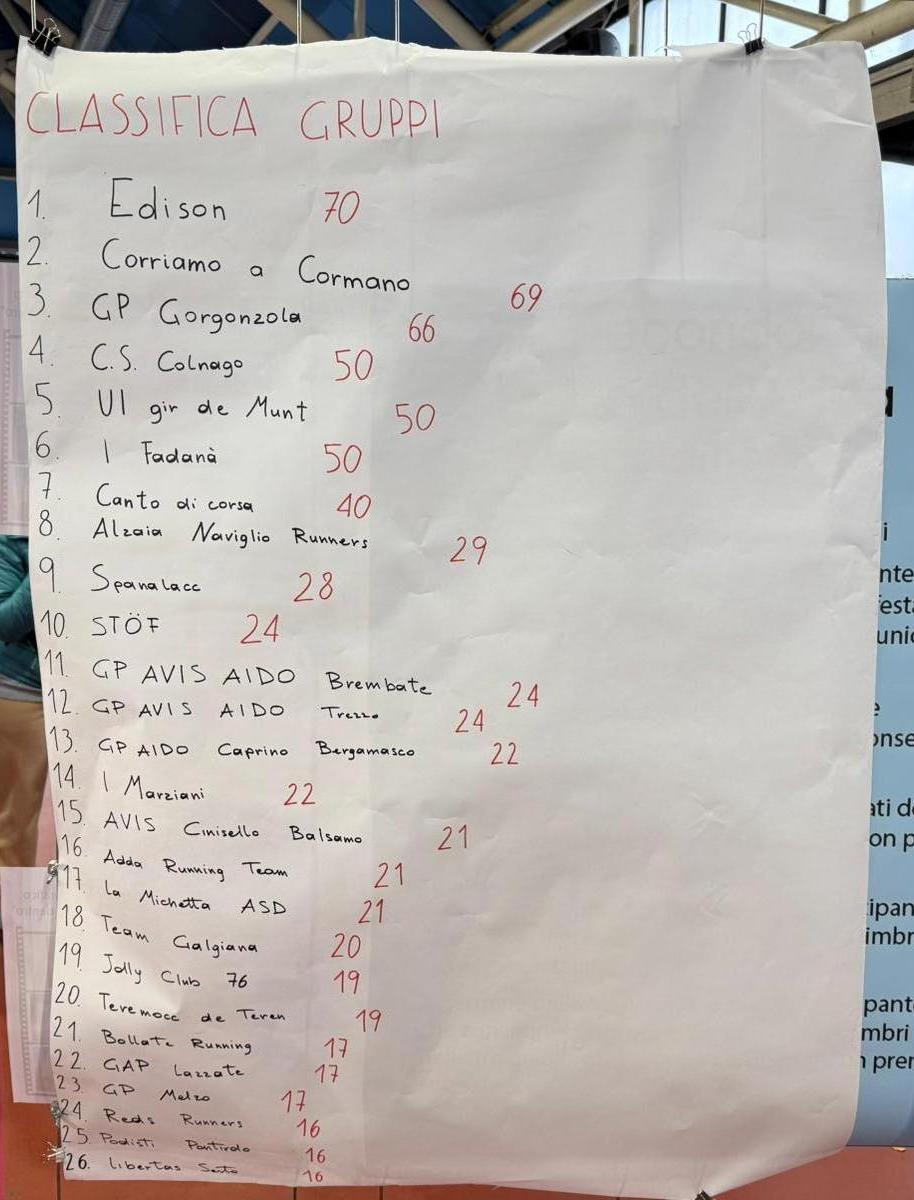 CLASSIFICA GRUPPI
1. Edison 70
2. Corriamo a Cormano 69
3. GP Gorgonzola 66
4. C.S. Colnago 50
5. Ul gir de Munt 50
6. I Fadanà 50
7. Canto di corsa 40
8. Alzaia Naviglio Runners 29
9. Spanalacc 28
10. STÖF 24
11. GP AVIS AIDO Brembate 24
12. GP AVIS AIDO Trezzo 24
13. GP AIDO Caprino Bergamasco 22
14. I Marziani 22
15. AVIS Cinisello Balsamo 21
16. Adda Running Team 21
17. La Michetta ASD 21
18. Team Galgiana 20
19. Jolly Club 76 19
20. Teremocc de Teren 19
21. Bollate Running 17
22. GAP Lazzate 17
23. GP Melzo 17
24. Reds Runners 16
25. Podisti Pontirolo 16
26. Libertas Sesto 16